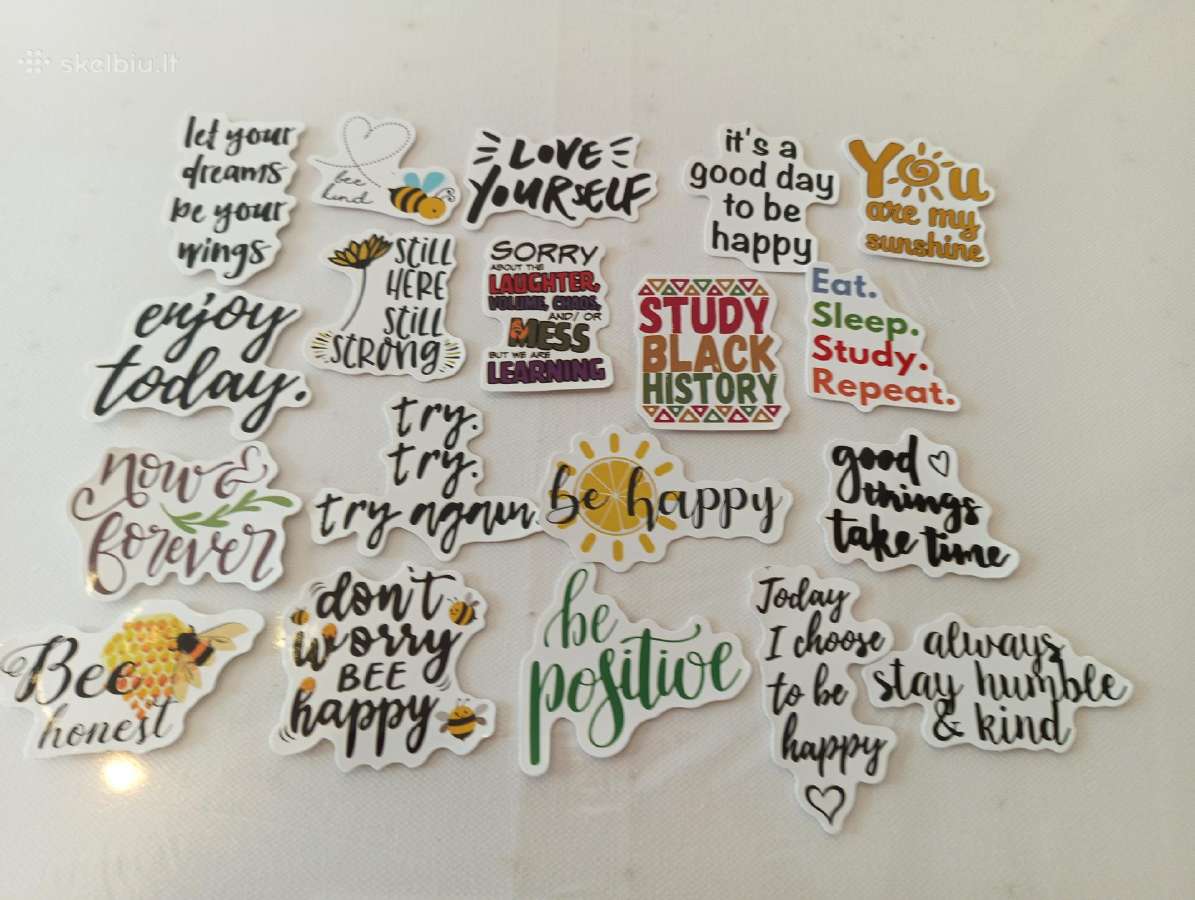 skelbiu.lt
let your
dreams
be your
wings
bee
kind
LOVE
YOURSELF
it's a
good day
to be
happy
You
are my
sunshine
enjoy
today.
STILL
HERE
STILL
STRONG
SORRY
ABOUT THE
LAUGHTER,
VOLUME, CHAOS,
AND/OR
MESS
BUT WE ARE
LEARNING
STUDY
BLACK
HISTORY
Eat.
Sleep.
Study.
Repeat.
now &
forever
try.
try.
try again.
be happy
good
things
take time
Bee
honest
don't
worry
BEE
happy
be
positive
Today
I choose
to be
happy
always
stay humble
& kind